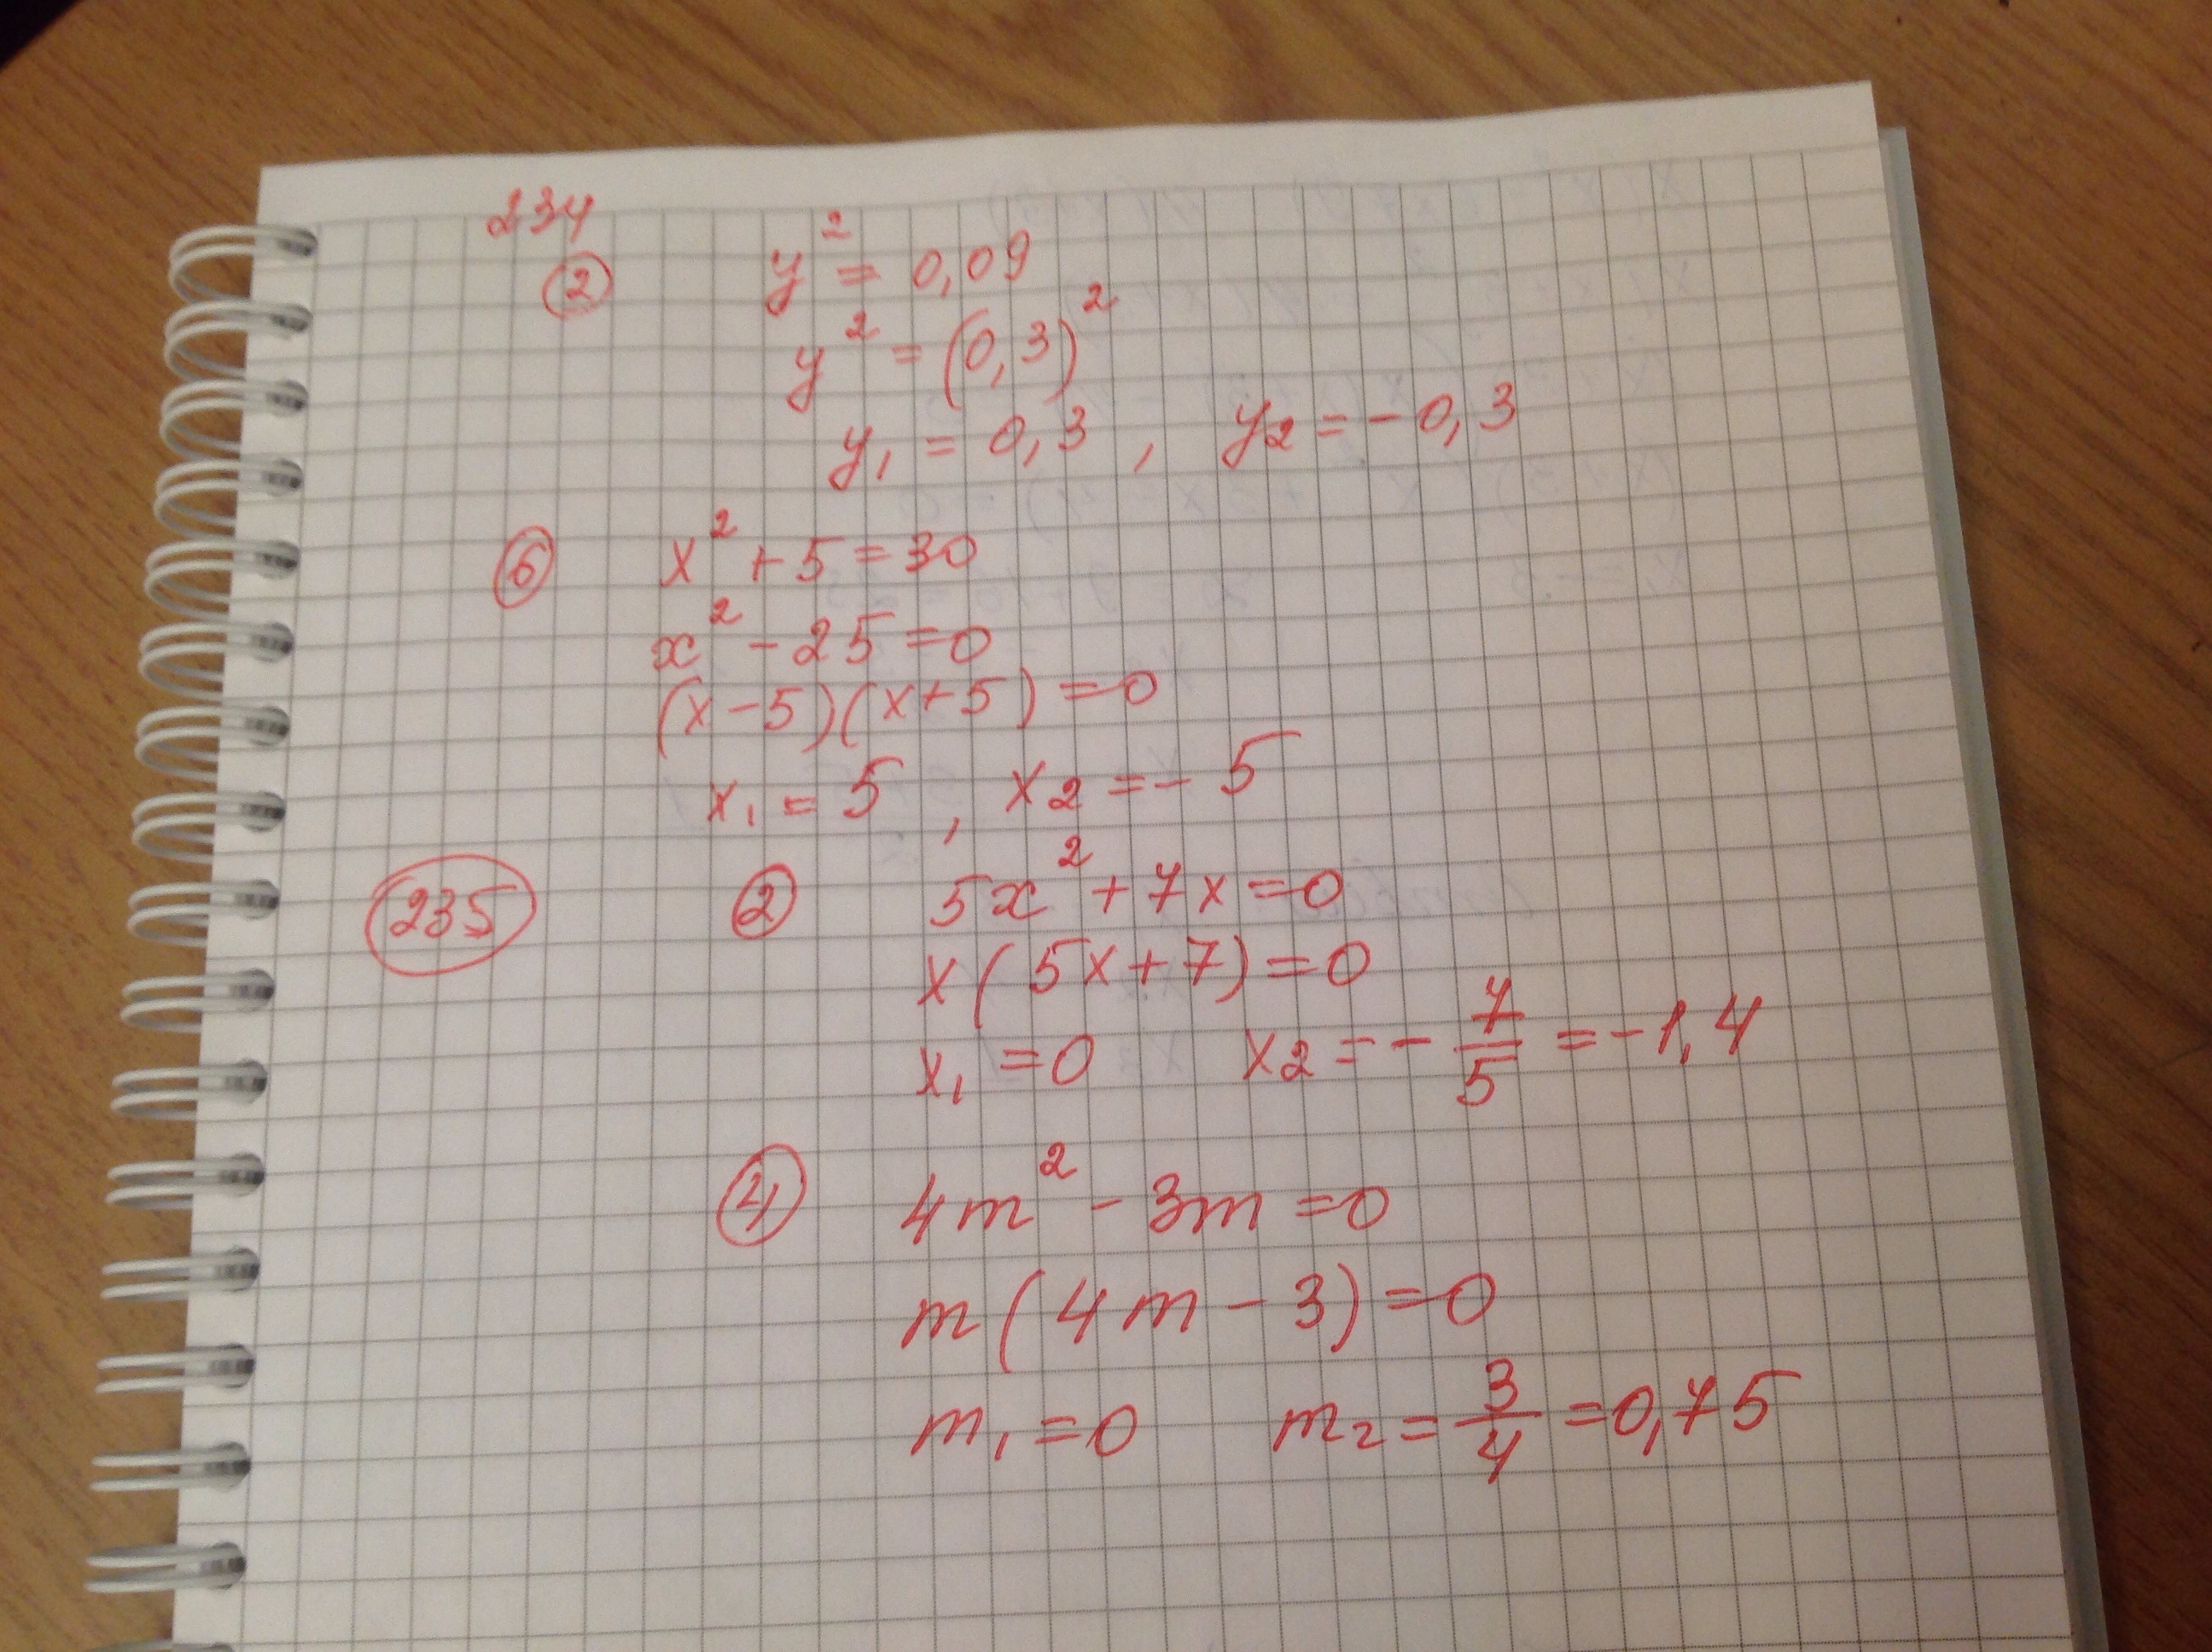 234
② y² = 0,09
y² = (0,3)²
y₁ = 0,3 , y₂ = - 0,3
⑥ x² + 5 = 30
x² - 25 = 0
(x - 5)(x + 5) = 0
x₁ = 5 , x₂ = - 5
235 ② 5x² + 7x = 0
x(5x + 7) = 0
x₁ = 0 x₂ = - 7/5 = -1,4
④ 4m² - 3m = 0
m(4m - 3) = 0
m₁ = 0 m₂ = 3/4 = 0,75